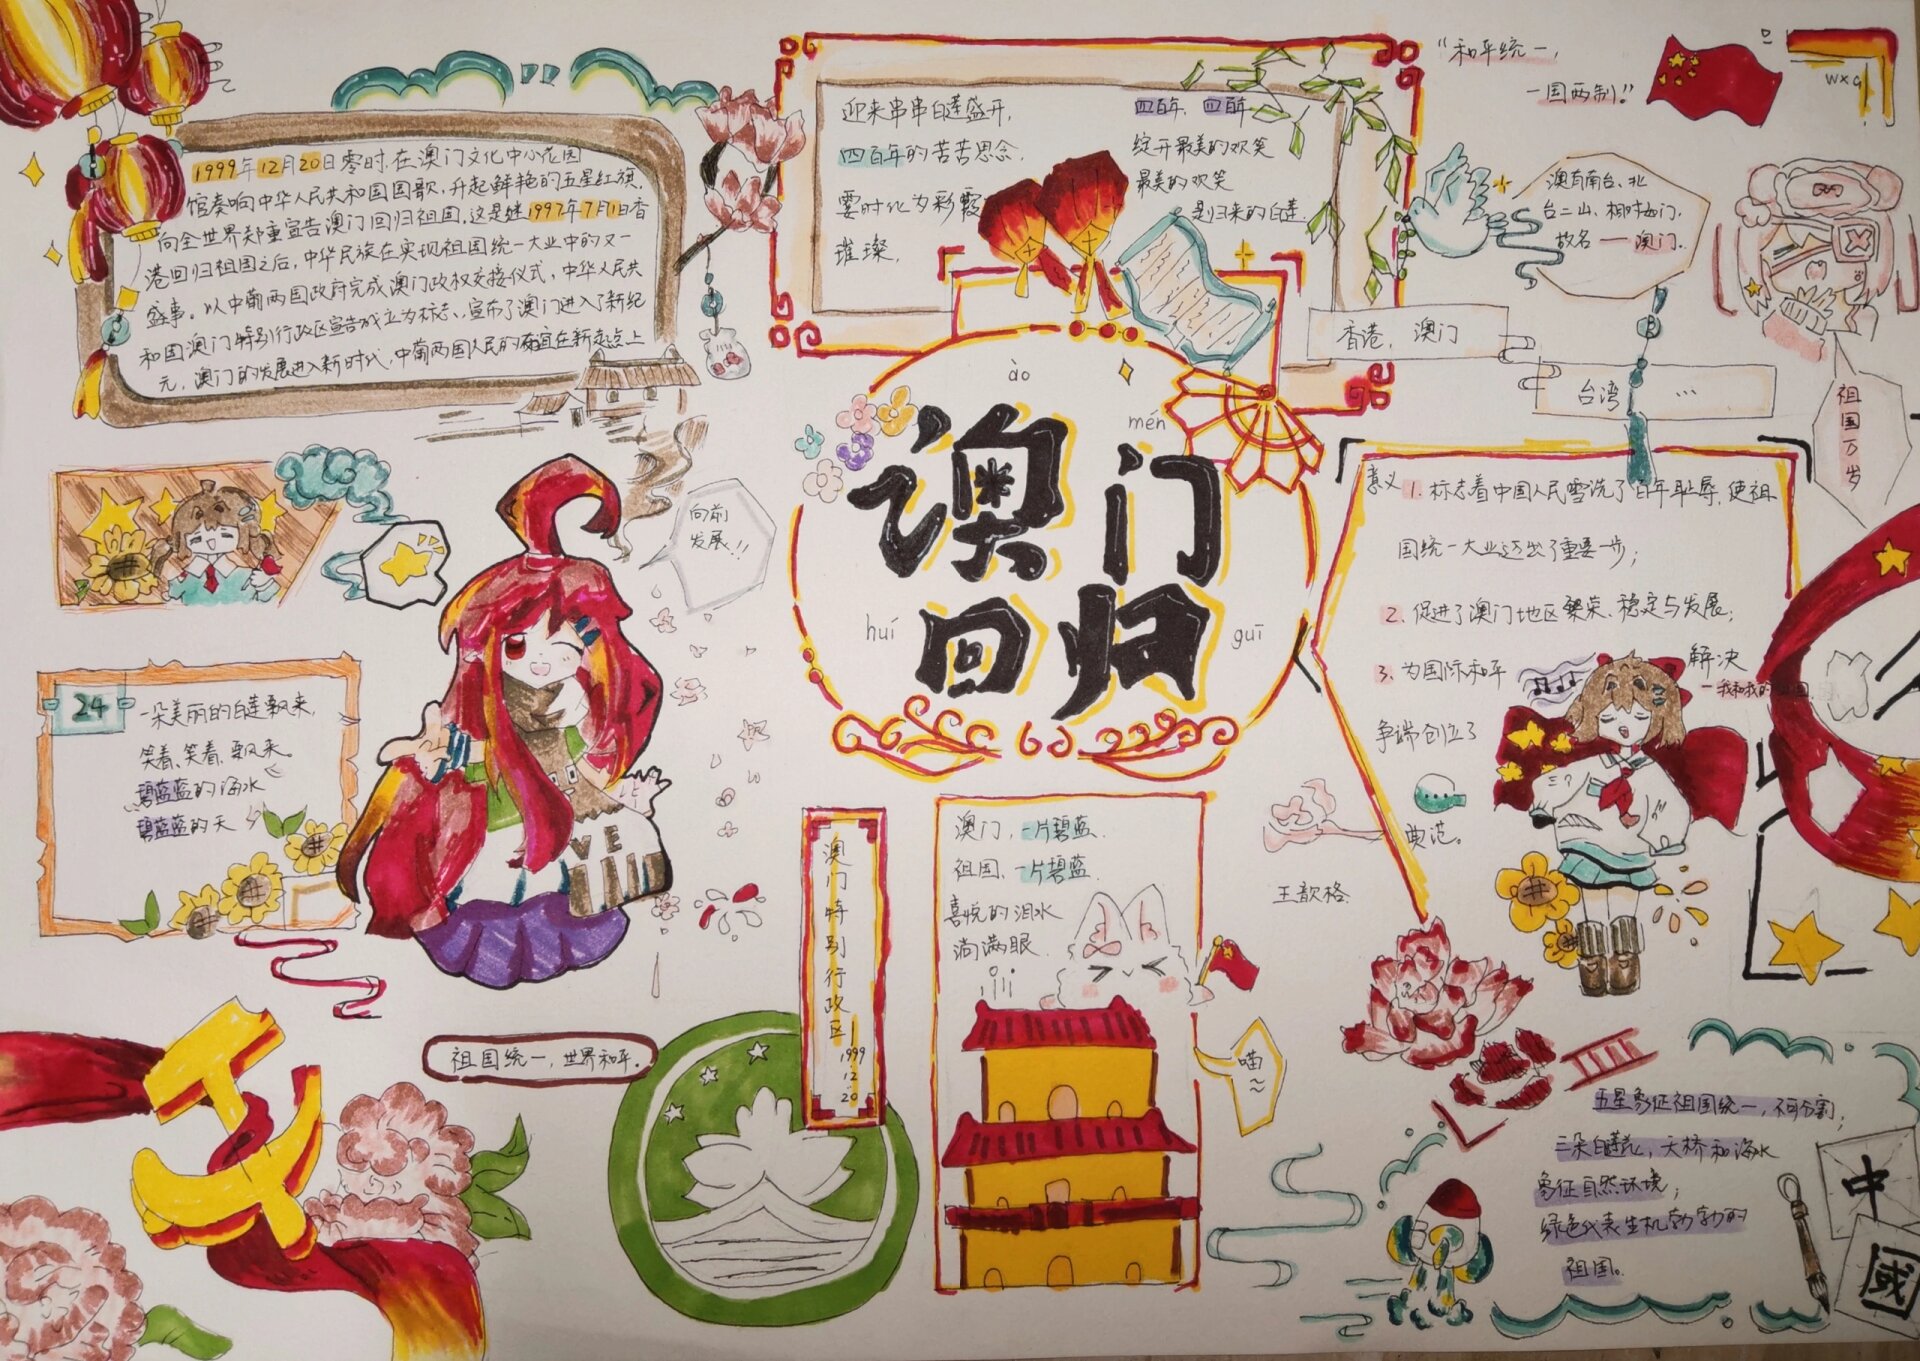 1999年12月20日零时,在澳门文化中心花园
馆奏响中华人民共和国国歌,升起鲜艳的五星红旗,
向全世界郑重宣告澳门回归祖国,这是继1997年7月1日香
港回归祖国之后,中华民族在实现祖国统一大业中的又一
盛事。以中葡两国政府完成澳门政权交接仪式,中华人民共
和国澳门特别行政区宣告成立为标志,宣布了澳门进入了新纪
元,澳门的发展进入新时代,中葡两国人民的友谊在新起点上
迎来串串白莲盛开,
四百年的苦苦思念,
霎时化为彩霞
璀璨,
四百年、四百年
绽开最美的欢笑
最美的欢笑
是归来的白莲
“和平统一,
一国两制!”
wxg
澳有南台、北
台二山,相对如门,
故名——澳门。
香港,澳门
台湾 …
祖国万岁
ào
mén
澳门
回归
huí
guī
向前
发展!!
24
一朵美丽的白莲飘来,
笑着、笑着、飘来
碧蓝蓝的海水
碧蓝蓝的天
意义 1. 标志着中国人民雪洗了百年耻辱,使祖
国统一大业迈出了重要一步;
2. 促进了澳门地区繁荣、稳定与发展;
3. 为国际和平
解决
争端创立了
典范。
王歆格
VE
澳门特别行政区
1999
12
20
澳门,一片碧蓝
祖国,一片碧蓝
喜悦的泪水
淌满眼
喵~
祖国统一,世界和平。
五星象征祖国统一,不可分割;
三朵白莲花,大桥和海水
象征自然环境;
绿色代表生机勃勃的
祖国。
中
國